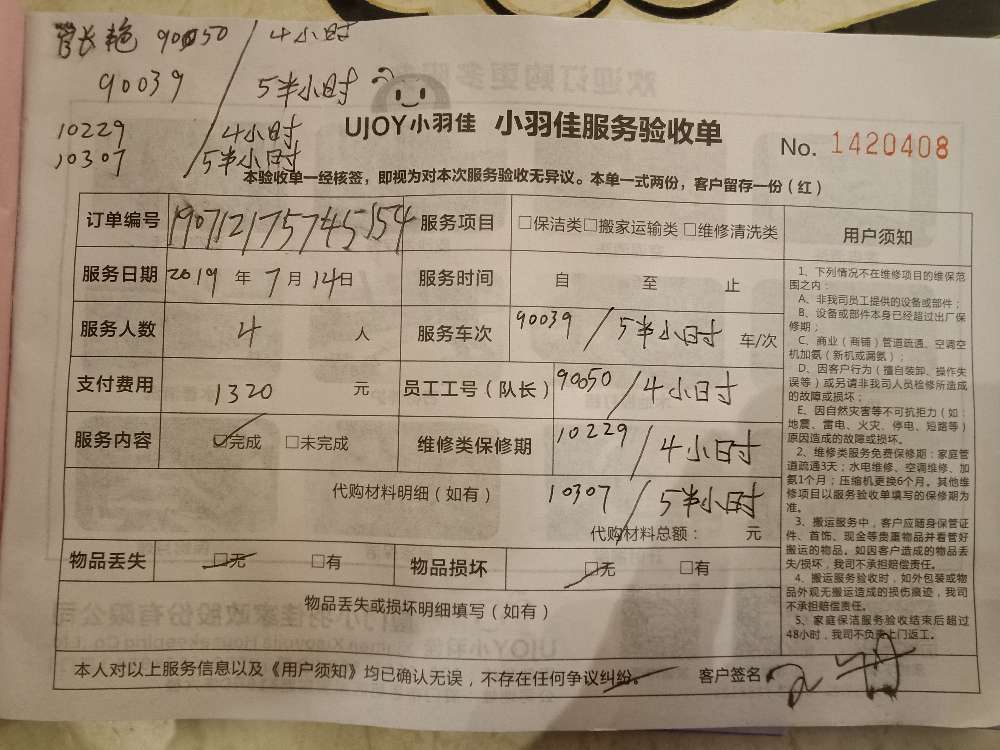 管长艳 90050 / 4小时
90039 / 5半小时
10229 / 4小时
10307 / 5半小时
UJOY小羽佳 小羽佳服务验收单 No. 1420408
本验收单一经核签，即视为对本次服务验收无异议。本单一式两份，客户留存一份（红）
订单编号 190712175745154 服务项目 □保洁类□搬家运输类 □维修清洗类
服务日期 2019 年 7 月 14 日 服务时间 自 至 止
服务人数 4 人 服务车次 90039 / 5半小时 车/次
支付费用 1320 元 员工工号（队长） 90050 / 4小时
服务内容 ☑完成 □未完成 维修类保修期 10229 / 4小时
代购材料明细（如有） 10307 / 5半小时
代购材料总额： 元
物品丢失 ☑无 □有 物品损坏 ☑无 □有
物品丢失或损坏明细填写（如有）
本人对以上服务信息以及《用户须知》均已确认无误，不存在任何争议纠纷。 客户签名
用户须知
1、下列情况不在维修项目的维保范
围之内：
A、非我司员工提供的设备或部件；
B、设备或部件本身已经超过出厂保
修期；
C、商业（商铺）管道疏通、空调空
机加氨（新机或漏氨）；
D、因客户行为（擅自装卸、操作失
误等）或另请非我司人员检修所造成
的故障或损坏；
E、因自然灾害等不可抗拒力（如：
地震、雷电、火灾、停电、短路等）
原因造成的故障或损坏。
2、维修类服务免费保修期：家庭管
道疏通3天；水电维修、空调维修、加
氨1个月；压缩机更换6个月。其他维
修项目以服务验收单填写的保修期为
准。
3、搬运服务中，客户应随身保管证
件、首饰、现金等贵重物品并看管好
搬运的物品。如因客户造成的物品丢
失/损坏，我司不承担赔偿责任。
4、搬运服务验收时，如外包装或物
品外观无搬运造成的损伤痕迹，我司
不承担赔偿责任。
5、家庭保洁服务验收结束后超过
48小时，我司不负责上门返工。